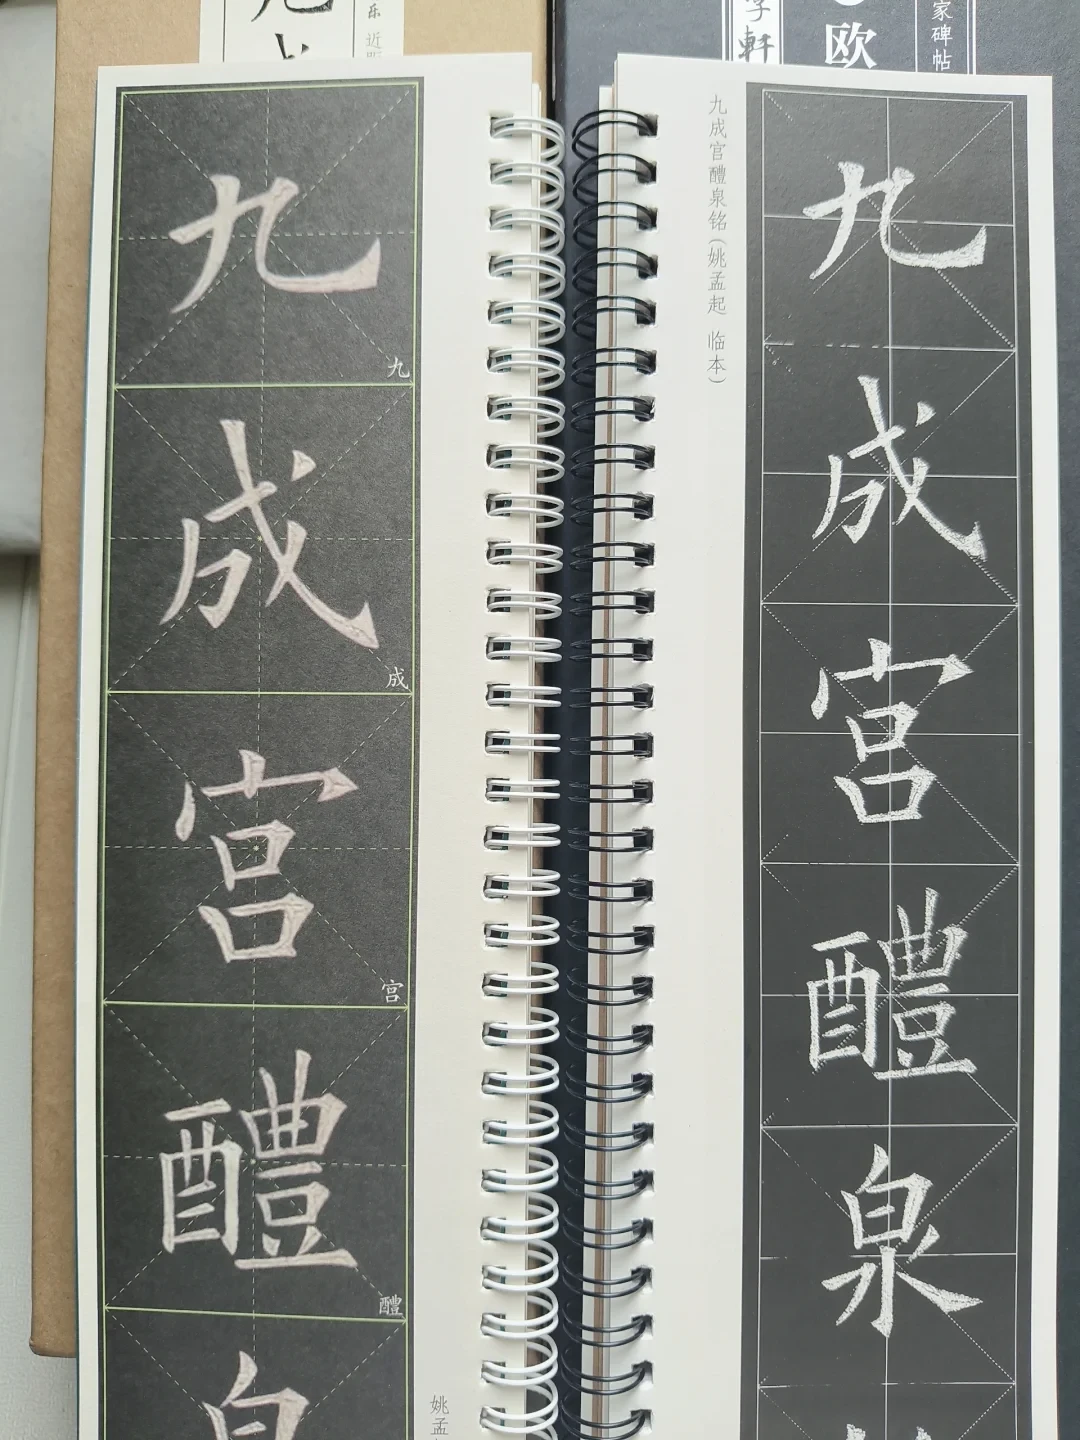 九
成
宫
醴
泉
九
成
宫
醴
姚孟
乐 近
轩
欧
家碑帖
九成宫醴泉铭(姚孟起 临本)
九
成
宫
醴
泉